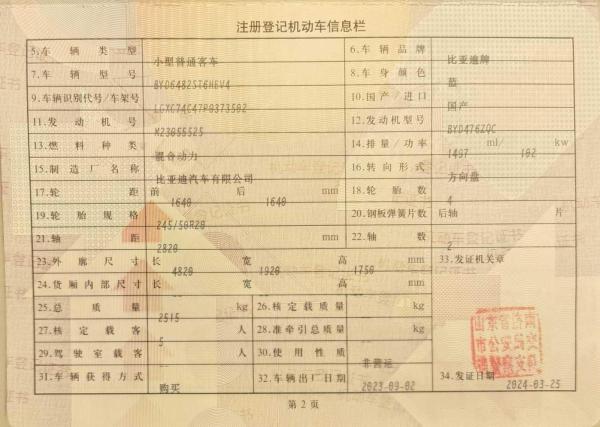 注册登记机动车信息栏
5.车辆类型 小型普通客车 6.车辆品牌 比亚迪牌
7.车辆型号 BYD6482ST6HEV4 8.车身颜色 蓝
9.车辆识别代号/车架号 LGXC74C47P0373502 10.国产/进口 国产
11.发动机号 M23055525 12.发动机型号 BYD476ZQC
13.燃料种类 混合动力 14.排量/功率 1497 ml/ 102 kw
15.制造厂名称 比亚迪汽车有限公司 16.转向形式 方向盘
17.轮距 前 1640 后 1640 mm 18.轮胎数 4
19.轮胎规格 245/50R20 20.钢板弹簧片数 后轴 片
21.轴距 2820 mm 22.轴数 2
23.外廓尺寸 长 4820 宽 1920 高 1750 mm 33.发证机关章
24.货厢内部尺寸 长 宽 高 mm
25.总质量 2515 kg 26.核定载质量 kg
27.核定载客 5 人 28.准牵引总质量 kg
29.驾驶室载客 人 30.使用性质 非营运
31.车辆获得方式 购买 32.车辆出厂日期 2023-09-02 34.发证日期 2024-03-25
第2页